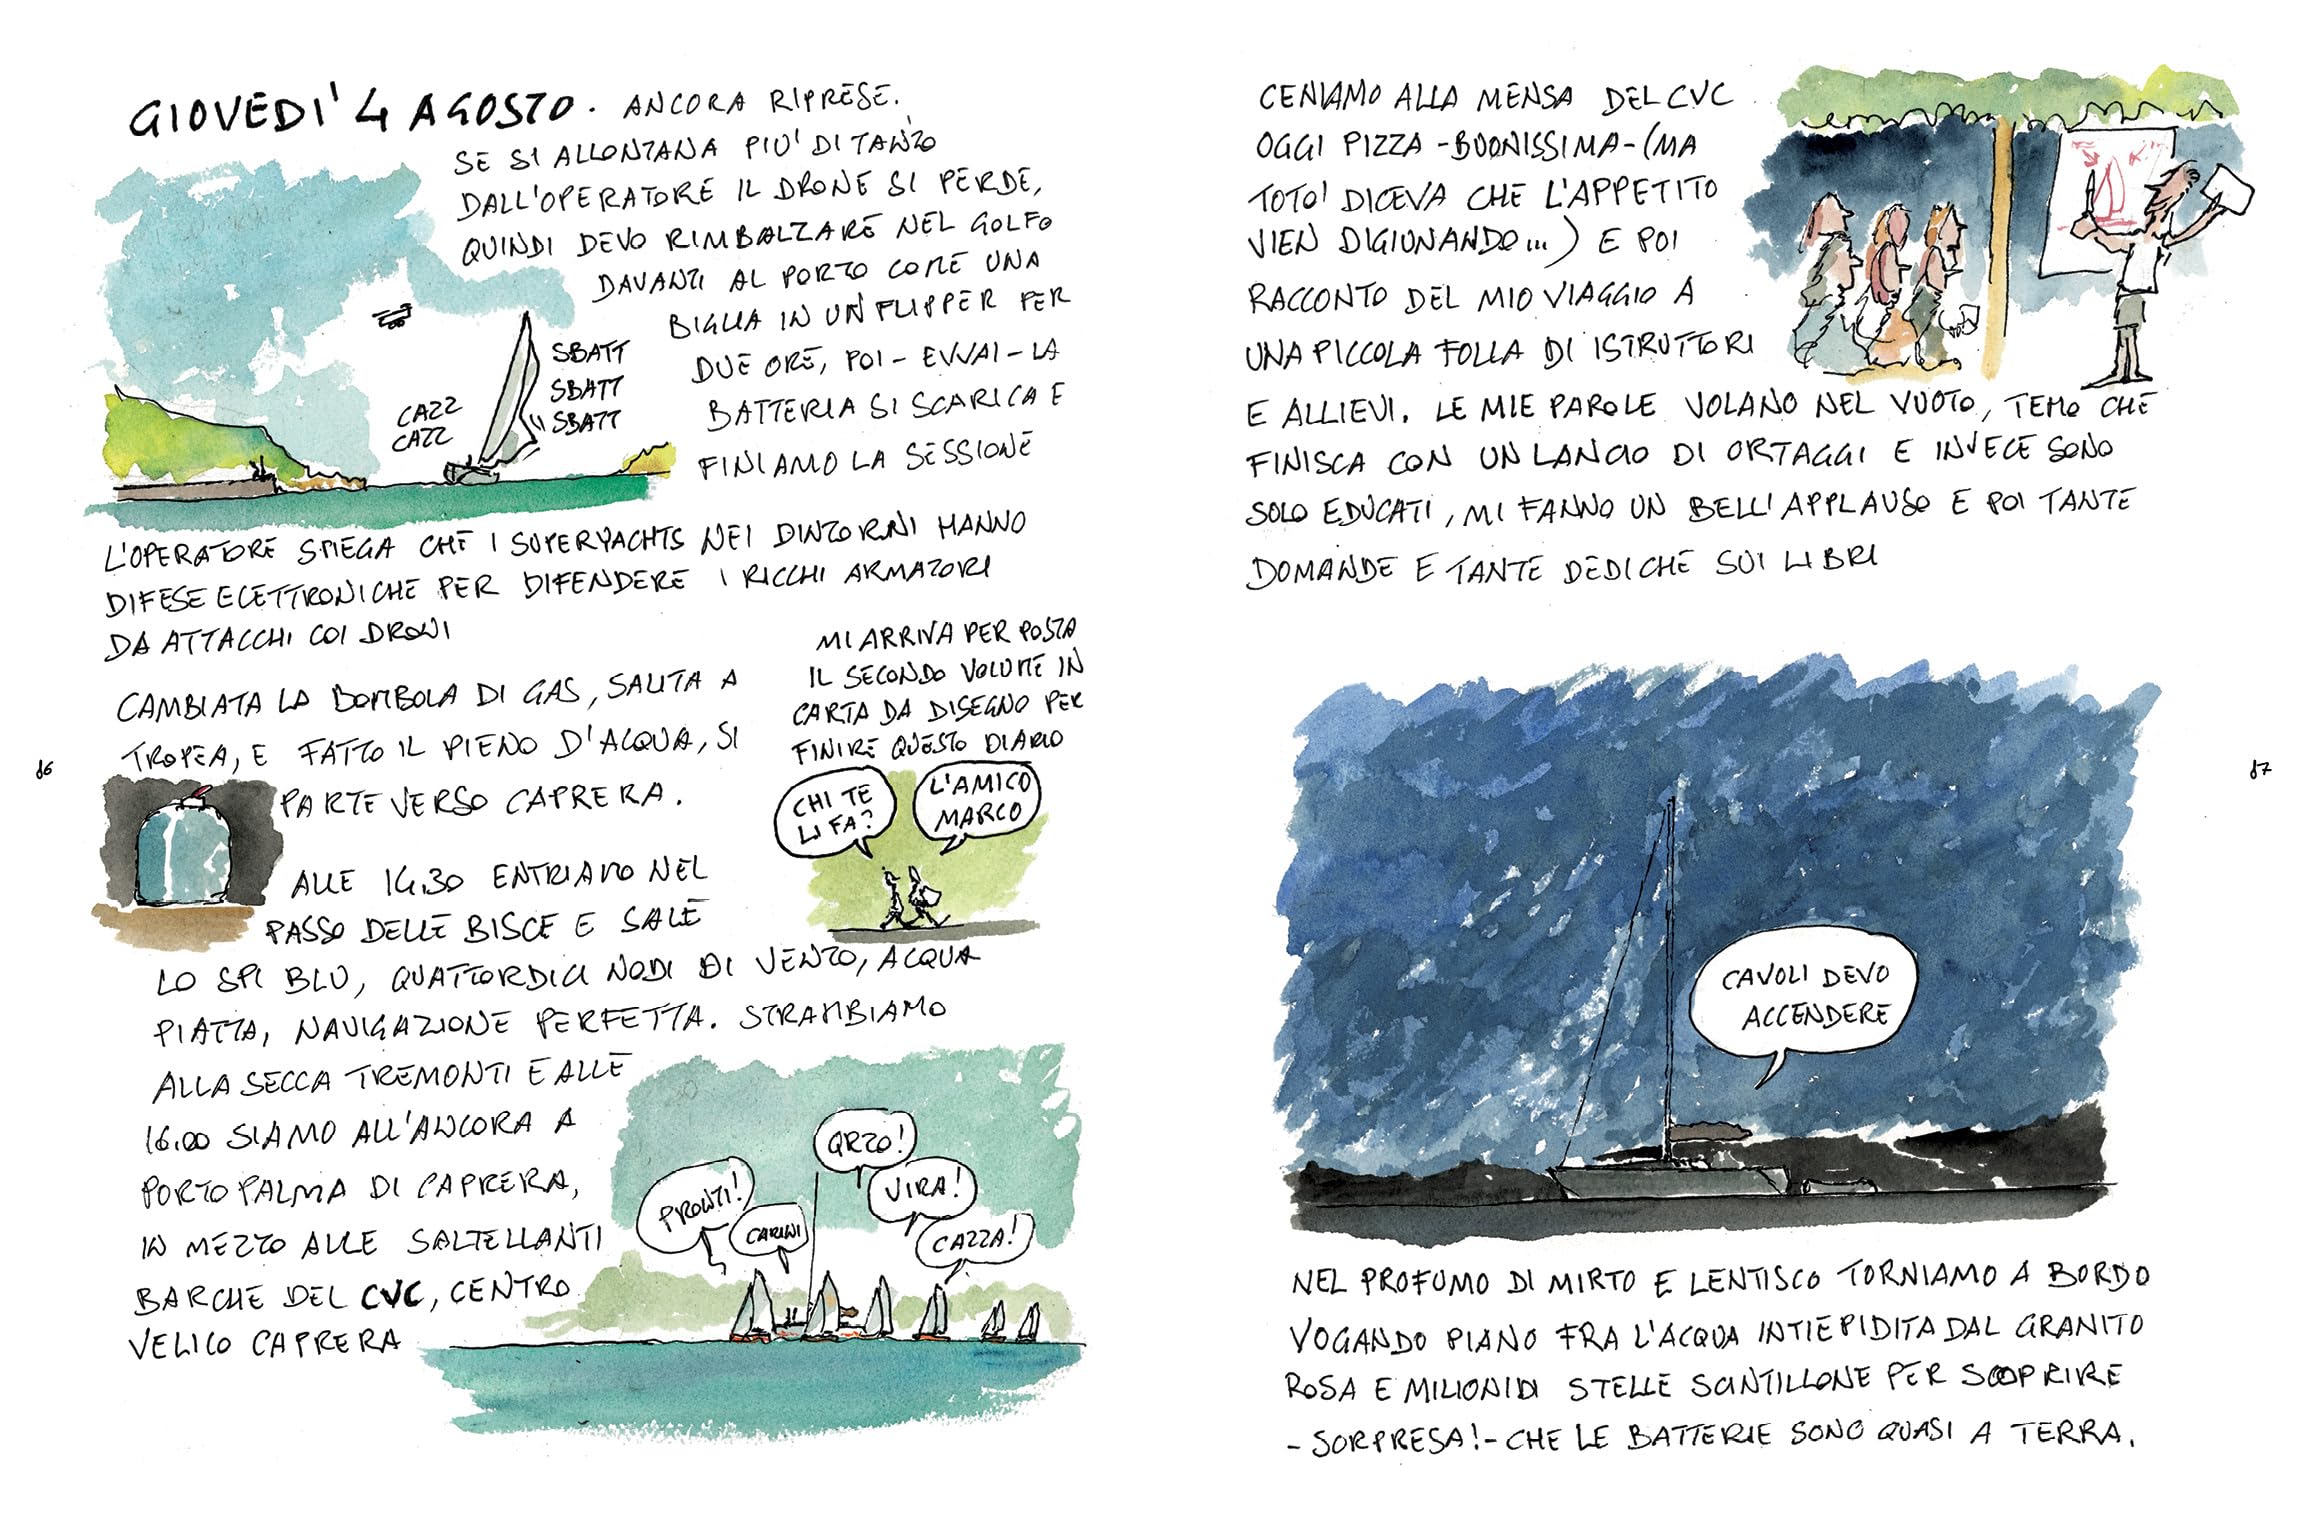 GIOVEDI' 4 AGOSTO. ANCORA RIPRESE.
SE SI ALLONTANA PIU' DI TANTO
DALL'OPERATORE IL DRONE SI PERDE,
QUINDI DEVO RIMBALZARE NEL GOLFO
DAVANTI AL PORTO COME UNA
BIGLIA IN UN FLIPPER PER
DUE ORE, POI - EVVAI - LA
BATTERIA SI SCARICA E
FINIAMO LA SESSIONE
SBATT
SBATT
SBATT
CAZZ
CAZZ
L'OPERATORE SPIEGA CHE I SUPERYACHTS NEI DINTORNI HANNO
DIFESE ELETTRONICHE PER DIFENDERE I RICCHI ARMATORI
DA ATTACCHI COI DRONI
CAMBIATA LA BOMBOLA DI GAS, SALITA A
TROPEA, E FATTO IL PIENO D'ACQUA, SI
PARTE VERSO CAPRERA.
MI ARRIVA PER POSTA
IL SECONDO VOLUME IN
CARTA DA DISEGNO PER
FINIRE QUESTO DIARIO
CHI TE
LI FA?
L'AMICO
MARCO
86
ALLE 14.30 ENTRIAMO NEL
PASSO DELLE BISCE E SALE
LO SPI BLU, QUATTORDICI NODI DI VENTO, ACQUA
PIATTA, NAVIGAZIONE PERFETTA. STRAMBIAMO
ALLA SECCA TREMONTI E ALLE
16.00 SIAMO ALL'ANCORA A
PORTO PALMA DI CAPRERA,
IN MEZZO ALLE SALTELLANTI
BARCHE DEL CVC, CENTRO
VELICO CAPRERA
PRONTI!
CARINI
ORZO!
VIRA!
CAZZA!
CENIAMO ALLA MENSA DEL CVC
OGGI PIZZA - BUONISSIMA - (MA
TOTO' DICEVA CHE L'APPETITO
VIEN DIGIUNANDO...) E POI
RACCONTO DEL MIO VIAGGIO A
UNA PICCOLA FOLLA DI ISTRUTTORI
E ALLIEVI. LE MIE PAROLE VOLANO NEL VUOTO, TEMO CHE
FINISCA CON UN LANCIO DI ORTAGGI E INVECE SONO
SOLO EDUCATI, MI FANNO UN BELL'APPLAUSO E POI TANTE
DOMANDE E TANTE DEDICHE SUI LIBRI
87
CAVOLI DEVO
ACCENDERE
NEL PROFUMO DI MIRTO E LENTISCO TORNIAMO A BORDO
VOGANDO PIANO FRA L'ACQUA INTIEPIDITA DAL GRANITO
ROSA E MILIONI DI STELLE SCINTILLONE PER SCOPRIRE
- SORPRESA! - CHE LE BATTERIE SONO QUASI A TERRA.